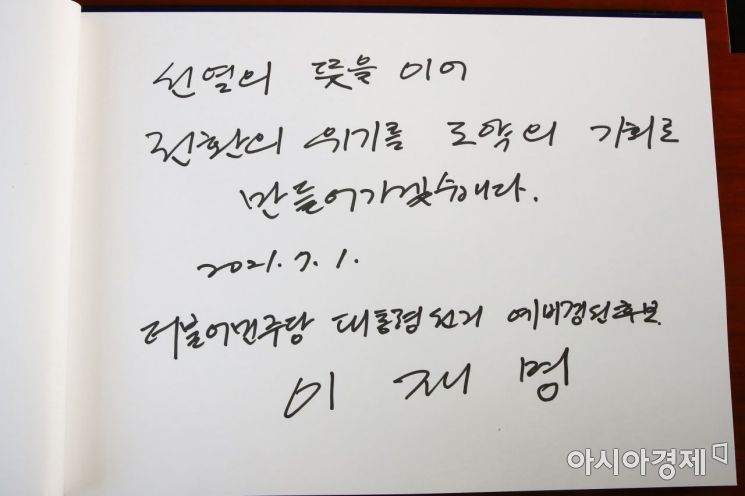 선열의 뜻을 이어
전환의 위기를 도약의 기회로
만들어가겠습니다.
2021. 7. 1.
더불어민주당 대통령선거 예비경선후보
이 재 명
아시아경제